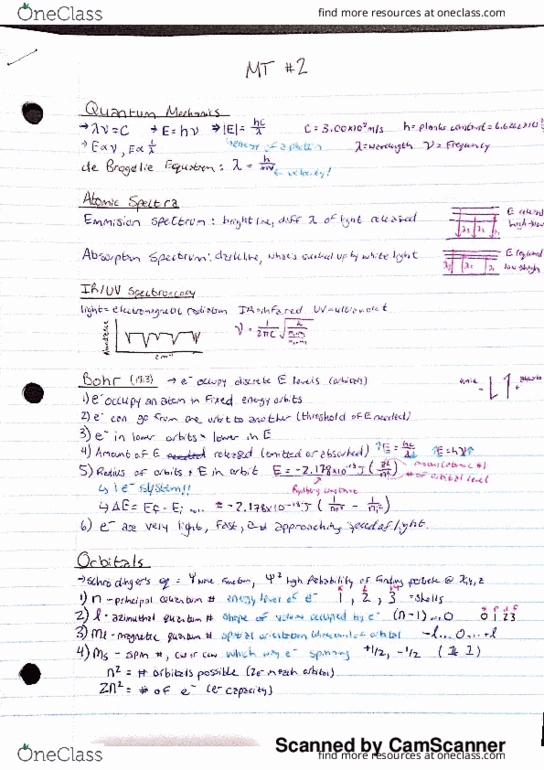 OneClass
find more resources at oneclass.com
MT #2
Quantum Mechanics
→ λν=C → E=hν → |E|= hc/λ C = 3.00×10⁸m/s h=planks constant =
→ E∝ν, E∝ 1/λ energy of a photon λ=wavelength ν= Frequency
de Brogelie Equation: λ = h/mv ← velocity!
Atomic Spectra
Emmision Spectrum: bright line, diff λ of light released
E released
high→low
Absorption Spectrum: darkline, what's sucked up by white light
E required
low→high
IR/UV Spectroscopy
light=electromagnetic radiation IR=infrared UV=ultraviolet
cm⁻¹
Bohr → e⁻ occupy discrete E levels (orbits)
1) e⁻ occupy an atom in fixed energy orbits
2) e⁻ can go from one orbit to another (threshold of E needed)
3) e⁻ in lower orbits = lower in E
4) Amount of E released (emitted or absorbed) ↑E = hc/λ↓ ↑E=hν↑
5) Radius of orbits + E in orbit E = -2.178×10⁻¹⁸J
# of orbital level
↳ 1 e⁻ system!!
Rydberg constant
↳ ΔE = Ef - Ei = -2.178×10⁻¹⁸J ( 1/nf² - 1/ni² )
6) e⁻ are very light, fast, and approaching speed of light.
Orbitals
→ Schrodinger's eq = Ψ wave function, Ψ² high Probability of Finding particle @ x,y,z
1) n - principal quantum # energy level of e⁻ 1, 2, 3 = shells
2) l - azimuthal quantum # shape of volume occupied by e⁻ (n-1)...0 0 1 2 3
3) Ml - magnetic quantum # orbital -l...0...+l
4) Ms - spin #, cw or ccw which way e⁻ spinning +1/2, -1/2
n² = # orbitals possible (2e⁻ in each orbital)
2n² = # of e⁻ (e⁻ capacity)
Scanned by CamScanner
OneClass
find more resources at oneclass.com